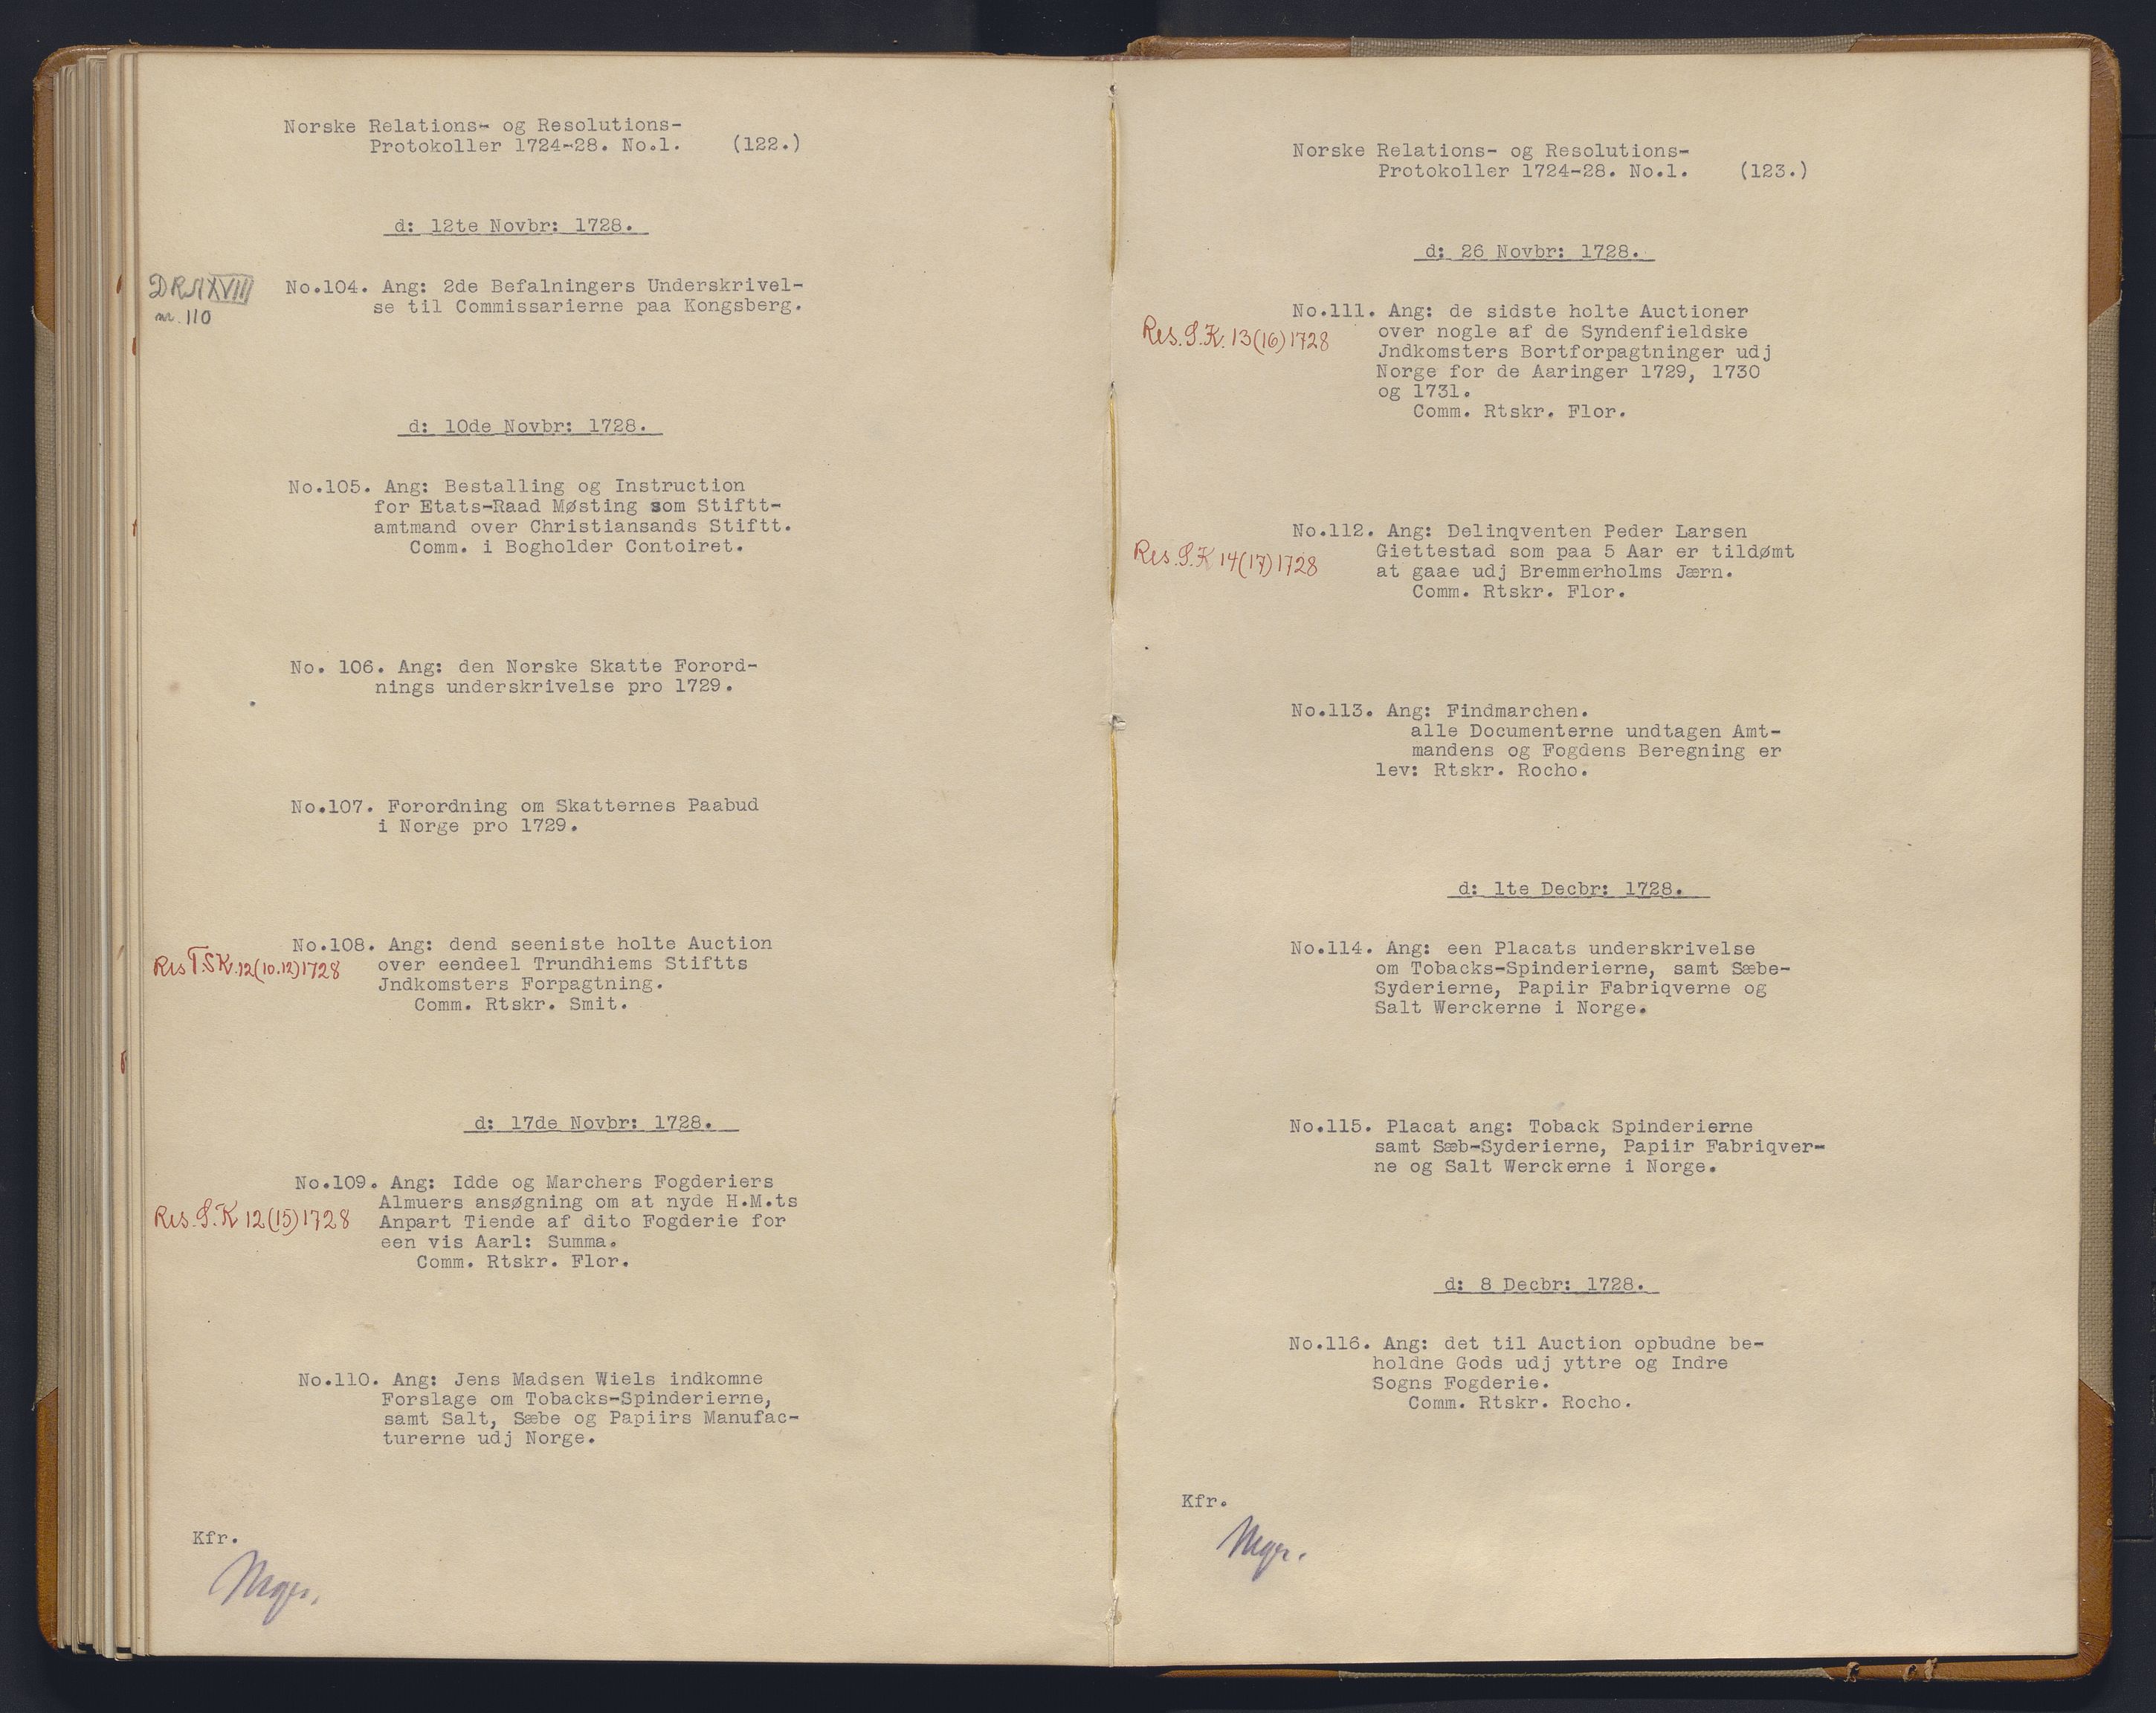 Norske Relations- og Resolutions-
Protokoller 1724-28. No.1. (122.)
d: 12te Novbr: 1728.
No.104. Ang: 2de Befalningers Underskrivel-
se til Commissarierne paa Kongsberg.
nr. 110
d: 10de Novbr: 1728.
No.105. Ang: Bestalling og Instruction
for Etats-Raad Møsting som Stiftt-
amtmand over Christiansands Stiftt.
Comm. i Bogholder Contoiret.
No. 106. Ang: den Norske Skatte Forord-
nings underskrivelse pro 1729.
No.107. Forordning om Skatternes Paabud
i Norge pro 1729.
No.108. Ang: dend seeniste holte Auction
Res T.SK.12(10.12)1728
over eendeel Trundhiems Stiftts
Jndkomsters Forpagtning.
Comm. Rtskr. Smit.
d: 17de Novbr: 1728.
No.109. Ang: Idde og Marchers Fogderiers
Almuers ansøgning om at nyde H.M.ts
Res. S. K 12(15)1728
Anpart Tiende af dito Fogderie for
een vis Aarl: Summa.
Comm. Rtskr. Flor.
No.110. Ang: Jens Madsen Wiels indkomne
Forslage om Tobacks-Spinderierne,
samt Salt, Sæbe og Papiirs Manufac-
turerne udj Norge.
Kfr.
Norske Relations- og Resolutions-
Protokoller 1724-28. No.1. (123.)
d: 26 Novbr: 1728.
No.111. Ang: de sidste holte Auctioner
Res. S. K. 13(16)1728
over nogle af de Syndenfieldske
Jndkomsters Bortforpagtninger udj
Norge for de Aaringer 1729, 1730
og 1731.
Comm. Rtskr. Flor.
No.112. Ang: Delinqventen Peder Larsen
Res. S. K 14(17)1728
Giettestad som paa 5 Aar er tildømt
at gaae udj Bremmerholms Jærn.
Comm. Rtskr. Flor.
No.113. Ang: Findmarchen.
alle Documenterne undtagen Amt-
mandens og Fogdens Beregning er
lev: Rtskr. Rocho.
d: 1te Decbr: 1728.
No.114. Ang: een Placats underskrivelse
om Tobacks-Spinderierne, samt Sæbe-
Syderierne, Papiir Fabriqverne og
Salt Werckerne i Norge.
No.115. Placat ang: Toback Spinderierne
samt Sæb-Syderierne, Papiir Fabriqver-
ne og Salt Werckerne i Norge.
d: 8 Decbr: 1728.
No.116. Ang: det til Auction opbudne be-
holdne Gods udj yttre og Indre
Sogns Fogderie.
Comm. Rtskr. Rocho.
Kfr.